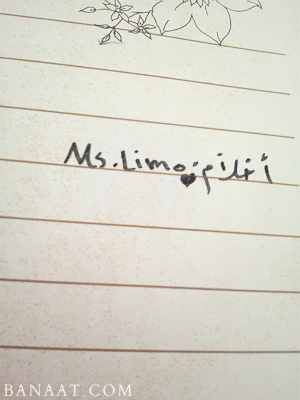 Ms.Limo♥أحلآم
BANAAT.COM